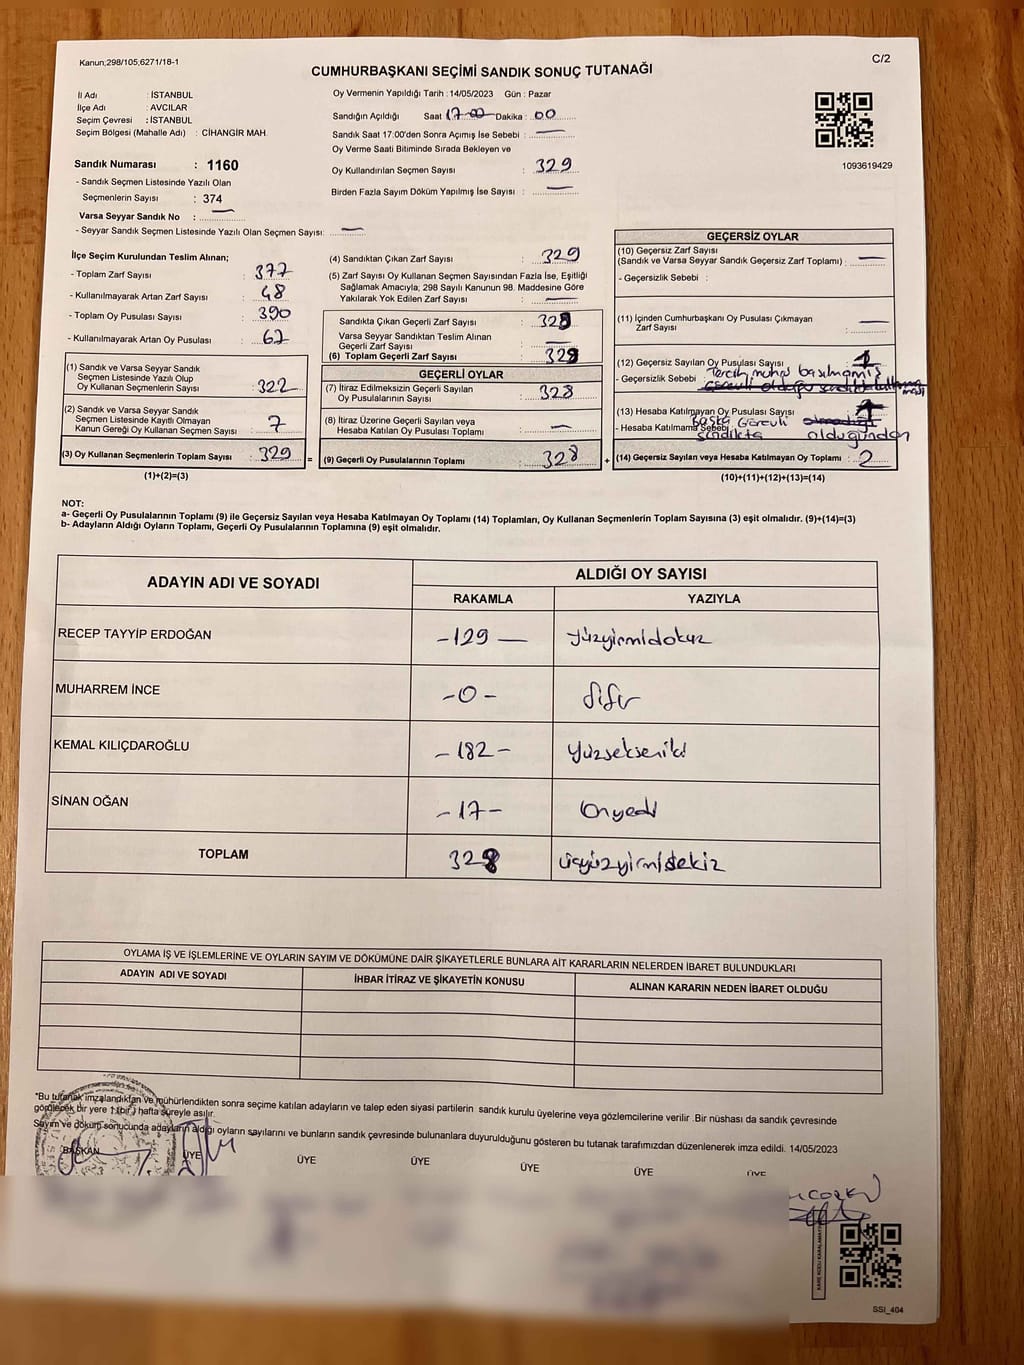 Kanun;298/105;6271/18-1
C/2
CUMHURBAŞKANI SEÇİMİ SANDIK SONUÇ TUTANAĞI
İl Adı : İSTANBUL
İlçe Adı : AVCILAR
Seçim Çevresi : İSTANBUL
Seçim Bölgesi (Mahalle Adı) : CİHANGİR MAH.
Sandık Numarası : 1160
- Sandık Seçmen Listesinde Yazılı Olan
Seçmenlerin Sayısı : 374
Varsa Seyyar Sandık No : —
- Seyyar Sandık Seçmen Listesinde Yazılı Olan Seçmen Sayısı: —
Oy Vermenin Yapıldığı Tarih :14/05/2023 Gün : Pazar
Sandığın Açıldığı Saat 17:00 Dakika : 00
Sandık Saat 17:00'den Sonra Açımış İse Sebebi : —
Oy Verme Saati Bitiminde Sırada Bekleyen ve
Oy Kullandırılan Seçmen Sayısı : 329
Birden Fazla Sayım Döküm Yapılmış İse Sayısı : —
1093619429
İlçe Seçim Kurulundan Teslim Alınan;
- Toplam Zarf Sayısı : 377
- Kullanılmayarak Artan Zarf Sayısı : 48
- Toplam Oy Pusulası Sayısı : 390
- Kullanılmayarak Artan Oy Pusulası : 62
(1) Sandık ve Varsa Seyyar Sandık
Seçmen Listesinde Yazılı Olup
Oy Kullanan Seçmenlerin Sayısı : 322
(2) Sandık ve Varsa Seyyar Sandık
Seçmen Listesinde Kayıtlı Olmayan
Kanun Gereği Oy Kullanan Seçmen Sayısı : 7
(3) Oy Kullanan Seçmenlerin Toplam Sayısı : 329
(1)+(2)=(3)
(4) Sandıktan Çıkan Zarf Sayısı : 329
(5) Zarf Sayısı Oy Kullanan Seçmen Sayısından Fazla İse, Eşitliği
Sağlamak Amacıyla, 298 Sayılı Kanunun 98. Maddesine Göre
Yakılarak Yok Edilen Zarf Sayısı : —
Sandıkta Çıkan Geçerli Zarf Sayısı : 328
Varsa Seyyar Sandıktan Teslim Alınan
Geçerli Zarf Sayısı : —
(6) Toplam Geçerli Zarf Sayısı : 328
GEÇERLİ OYLAR
(7) İtiraz Edilmeksizin Geçerli Sayılan
Oy Pusulalarının Sayısı : 328
(8) İtiraz Üzerine Geçerli Sayılan veya
Hesaba Katılan Oy Pusulası Toplamı : —
= (9) Geçerli Oy Pusulalarının Toplamı : 328 +
GEÇERSİZ OYLAR
(10) Geçersiz Zarf Sayısı
(Sandık ve Varsa Seyyar Sandık Geçersiz Zarf Toplamı) : —
- Geçersizlik Sebebi :
(11) İçinden Cumhurbaşkanı Oy Pusulası Çıkmayan
Zarf Sayısı : —
(12) Geçersiz Sayılan Oy Pusulası Sayısı : 1
- Geçersizlik Sebebi : Tercih mührü basılmamış
(13) Hesaba Katılmayan Oy Pusulası Sayısı : 1
- Hesaba Katılmama Sebebi : Başka Görevli
sandıkta olduğundan
(14) Geçersiz Sayılan veya Hesaba Katılmayan Oy Toplamı : 2
(10)+(11)+(12)+(13)=(14)
NOT:
a- Geçerli Oy Pusulalarının Toplamı (9) ile Geçersiz Sayılan veya Hesaba Katılmayan Oy Toplamı (14) Toplamları, Oy Kullanan Seçmenlerin Toplam Sayısına (3) eşit olmalıdır. (9)+(14)=(3)
b- Adayların Aldığı Oyların Toplamı, Geçerli Oy Pusulalarının Toplamına (9) eşit olmalıdır.
ADAYIN ADI VE SOYADI
ALDIĞI OY SAYISI
RAKAMLA YAZIYLA
RECEP TAYYİP ERDOĞAN -129 — yüzyirmidokuz
MUHARREM İNCE -0- Sıfır
KEMAL KILIÇDAROĞLU -182- yüzsekseniki
SİNAN OĞAN -17- Onyedi
TOPLAM 328 üçyüzyirmisekiz
OYLAMA İŞ VE İŞLEMLERİNE VE OYLARIN SAYIM VE DÖKÜMÜNE DAİR ŞİKAYETLERLE BUNLARA AİT KARARLARIN NELERDEN İBARET BULUNDUKLARI
ADAYIN ADI VE SOYADI İHBAR İTİRAZ VE ŞİKAYETİN KONUSU ALINAN KARARIN NEDEN İBARET OLDUĞU
*Bu tutanak imzalandıktan ve mühürlendikten sonra seçime katılan adayların ve talep eden siyasi partilerin sandık kurulu üyelerine veya gözlemcilerine verilir .Bir nüshası da sandık çevresinde
görülebilek bir yere 1 (bir) hafta süreyle asılır.
Sayım ve döküm sonucunda adayların aldığı oyların sayılarını ve bunların sandık çevresinde bulunanlara duyurulduğunu gösteren bu tutanak tarafımızdan düzenlenerek imza edildi. 14/05/2023
BAŞKAN ÜYE ÜYE ÜYE ÜYE ÜYE ÜYE
KARE KODU KARALAMAYINIZ
SSI_404